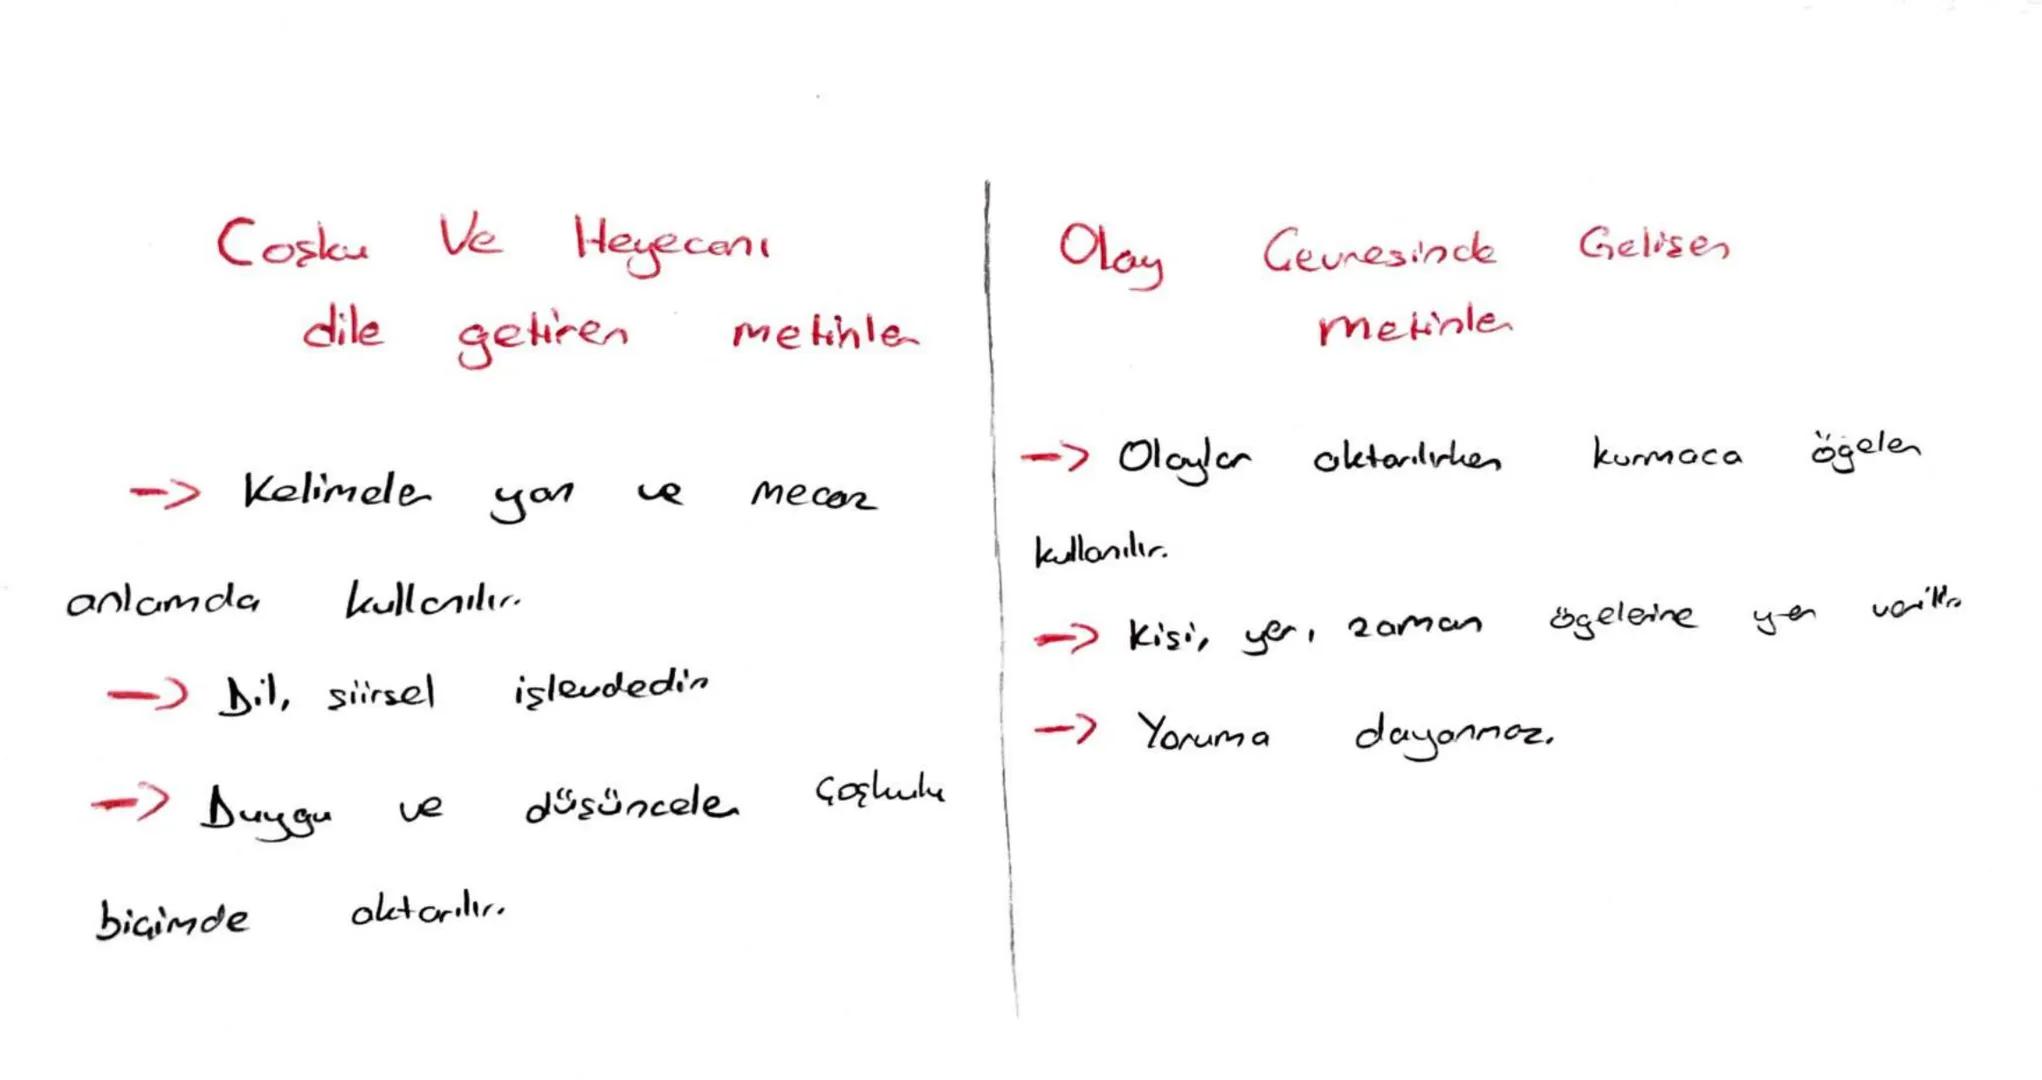 Coşku Ve Heyecanı
dile getiren metinler
-> Kelimeler yan ve mecaz
anlamda kullanılır.
-> Dil, şiirsel işlevdedir
-> Duygu ve düşünceler çoşkulu
biçimde aktarılır.
Olay Çevresinde Gelişen
metinler
-> Olaylar aktarılırken kurmaca öğeler
kullanılır.
-> Kişi, yer, zaman öğelerine yer verilir.
-> Yoruma dayanmaz.